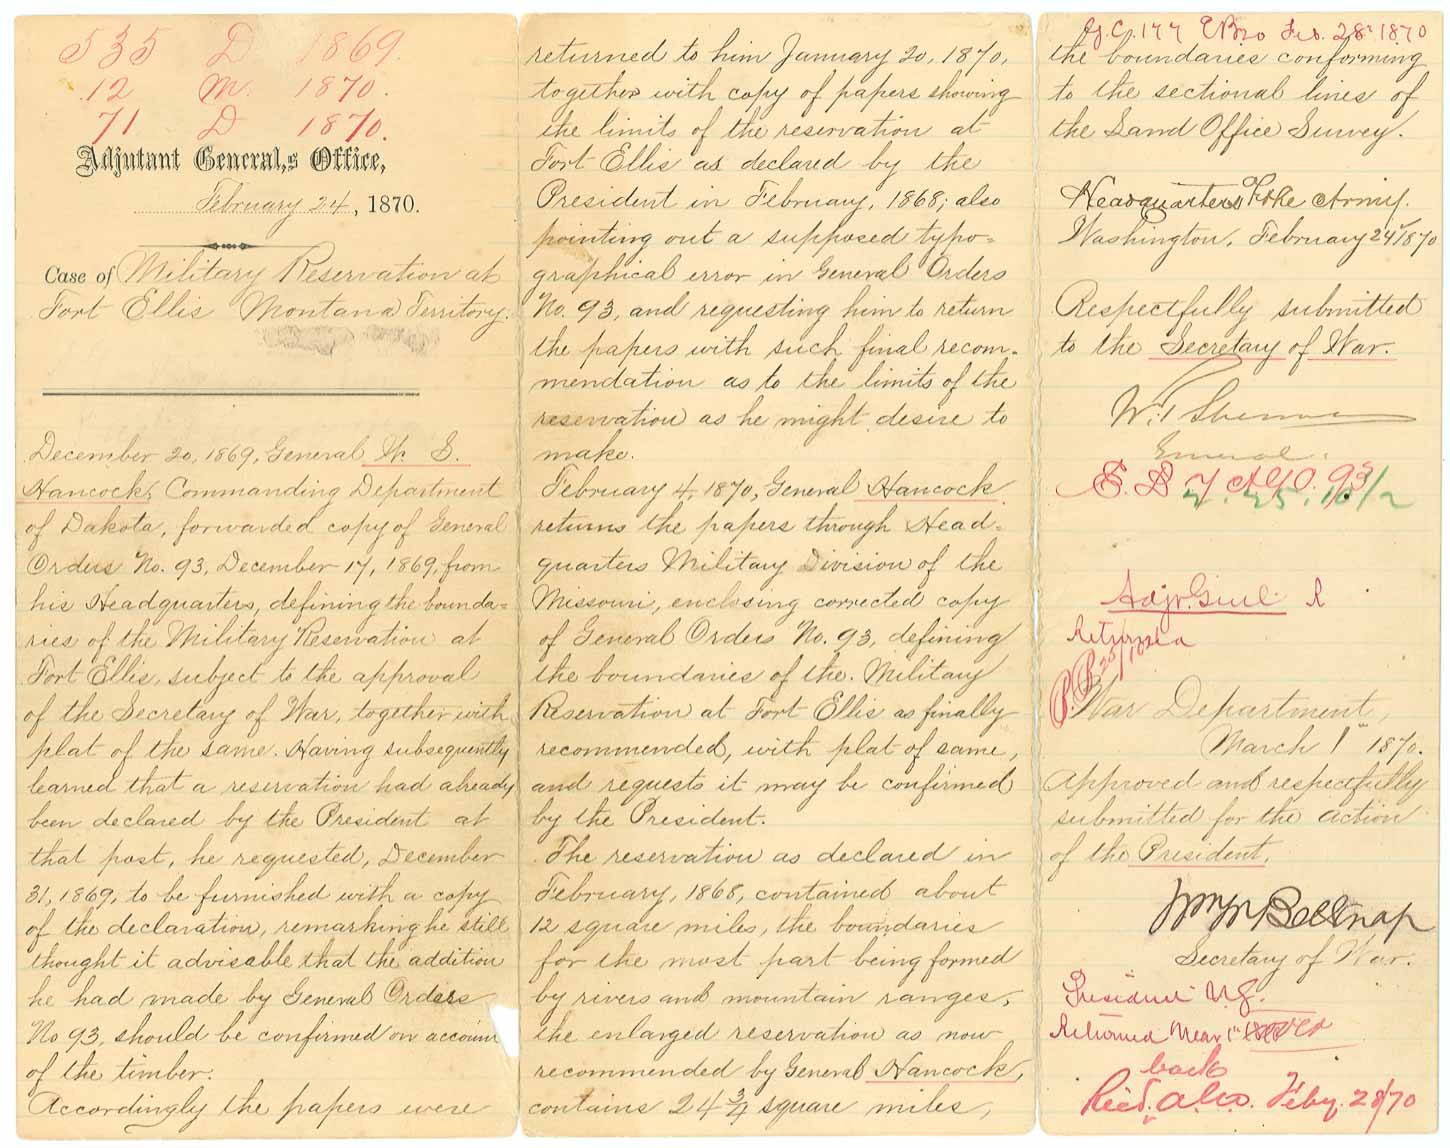 535 D 1869.
12 M. 1870.
71 D 1870.
Adjutant General,s Office,
February 24, 1870.
Case of Military Reservation at
Fort Ellis Montana Territory.
December 20, 1869, General W. S.
Hancock, Commanding Department
of Dakota, forwarded copy of General
Orders No. 93, December 17, 1869, from
his Headquarters, defining the bounda=
ries of the Military Reservation at
Fort Ellis, subject to the approval
of the Secretary of War, together with
plat of the same. Having subsequently
learned that a reservation had already
been declared by the President at
that post, he requested, December
31, 1869, to be furnished with a copy
of the declaration, remarking he still
thought it advisable that the addition
he had made by General Orders
No 93, should be confirmed on account
of the timber.
Accordingly the papers were
returned to him January 20, 1870,
together with copy of papers showing
the limits of the reservation at
Fort Ellis as declared by the
President in February, 1868; also
pointing out a supposed typo=
graphical error in General Orders
No. 93, and requesting him to return
the papers with such final recom-
mendation as to the limits of the
reservation as he might desire to
make.
February 4, 1870, General Hancock
returns the papers through Head-
quarters Military Division of the
Missouri, enclosing corrected copy
of General Orders No. 93, defining
the boundaries of the Military
Reservation at Fort Ellis as finally
recommended, with plat of same,
and requests it may be confirmed
by the President.
The reservation as declared in
February, 1868, contained about
12 square miles, the boundaries
for the most part being formed
by rivers and mountain ranges,
the enlarged reservation as now
recommended by General Hancock,
contains 24 3/4 square miles,
177 Feb. 28 1870
the boundaries conforming
to the sectional lines of
the Land Office Survey.
Headquarters of the Army.
Washington, February 24" 1870
Respectfully submitted
to the Secretary of War.
W. T. Sherman
General.
93
Adjt. Genl R
Returned
War Department,
March 1" 1870.
Approved and respectfully
submitted for the action
of the President.
Wm W Belknap
Secretary of War.
President
Returned Mar 1"
back
Recd. Feby. 28/70